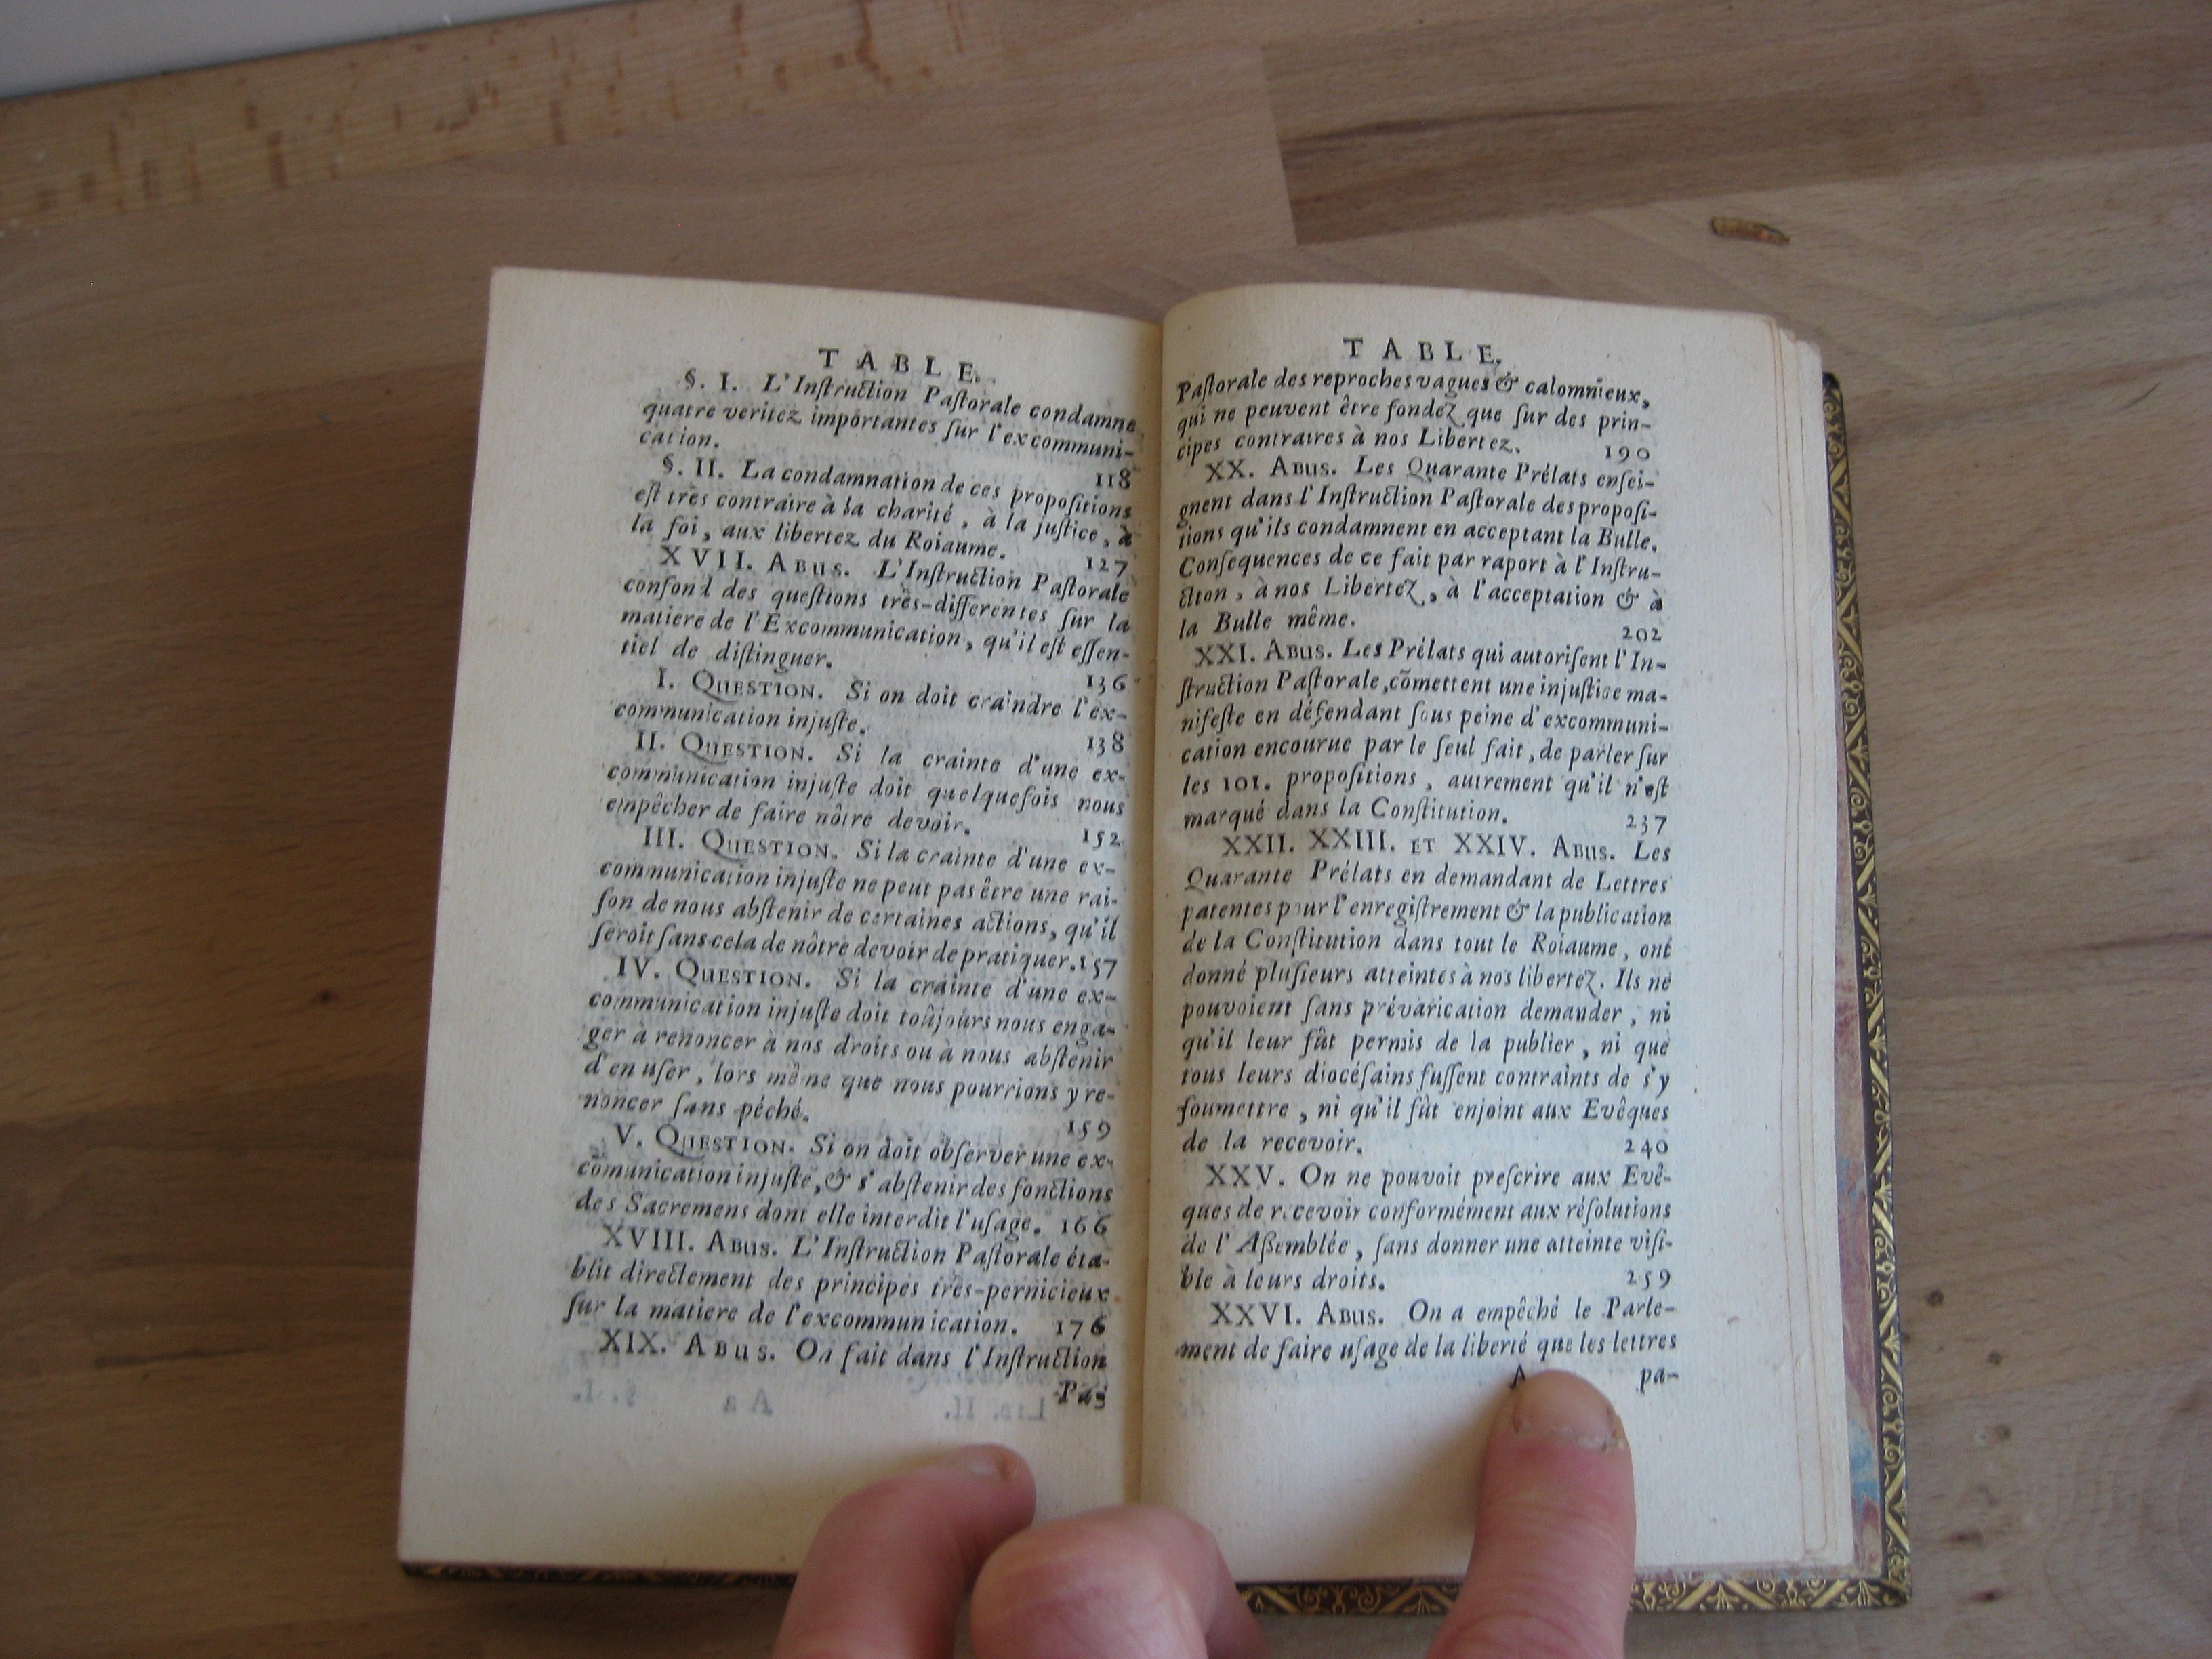 TABLE.
§. I. L'Inſtruction Paſtorale condamne
quatre veritez importantes ſur l'excommuni-
cation. 118
§. II. La condamnation de ces propoſitions
eſt très contraire à la charité, à la juſtice, à
la foi, aux libertez du Roiaume. 127
XVII. ABUS. L'Inſtruction Paſtorale
confond des queſtions très-differentes ſur la
matiere de l'Excommunication, qu'il eſt eſſen-
tiel de diſtinguer. 136
I. QUESTION. Si on doit craindre l'ex-
communication injuſte. 138
II. QUESTION. Si la crainte d'une ex-
communication injuſte doit quelquefois nous
empêcher de faire nôtre devoir. 152
III. QUESTION. Si la crainte d'une ex-
communication injuſte ne peut pas être une rai-
ſon de nous abſtenir de certaines actions, qu'il
ſeroit ſans cela de nôtre devoir de pratiquer. 157
IV. QUESTION. Si la crainte d'une ex-
communication injuſte doit toûjours nous enga-
ger à renoncer à nos droits ou à nous abſtenir
d'en uſer, lors même que nous pourrions y re-
noncer ſans péché. 159
V. QUESTION. Si on doit obſerver une ex-
cõmunication injuſte, & s'abſtenir des fonctions
des Sacremens dont elle interdit l'uſage. 166
XVIII. ABUS. L'Inſtruction Paſtorale éta-
blit directement des principes très-pernicieux
ſur la matiere de l'excommunication. 176
XIX. ABUS. On fait dans l'Inſtruction
Paſ
TABLE.
Paſtorale des reproches vagues & calomnieux,
qui ne peuvent être fondez que ſur des prin-
cipes contraires à nos Libertez. 190
XX. ABUS. Les Quarante Prélats enſei-
gnent dans l'Inſtruction Paſtorale des propoſi-
tions qu'ils condamnent en acceptant la Bulle.
Conſequences de ce fait par raport à l'Inſtru-
ction, à nos Libertez, à l'acceptation & à
la Bulle même. 202
XXI. ABUS. Les Prélats qui autoriſent l'In-
ſtruction Paſtorale, cõmettent une injuſtice ma-
nifeſte en défendant ſous peine d'excommuni-
cation encourue par le ſeul fait, de parler ſur
les 101. propoſitions, autrement qu'il n'eſt
marqué dans la Conſtitution. 237
XXII. XXIII. ET XXIV. ABUS. Les
Quarante Prélats en demandant de Lettres
patentes pour l'enregiſtrement & la publication
de la Conſtitution dans tout le Roiaume, ont
donné pluſieurs atteintes à nos libertez. Ils ne
pouvoient ſans prévarication demander, ni
qu'il leur fût permis de la publier, ni que
tous leurs diocéſains fuſſent contraints de s'y
ſoumettre, ni qu'il fût enjoint aux Evêques
de la recevoir. 240
XXV. On ne pouvoit preſcrire aux Evê-
ques de recevoir conformément aux réſolutions
de l'Aßemblée, ſans donner une atteinte viſi-
ble à leurs droits. 259
XXVI. ABUS. On a empêché le Parle-
ment de faire uſage de la liberté que les lettres
A pa-